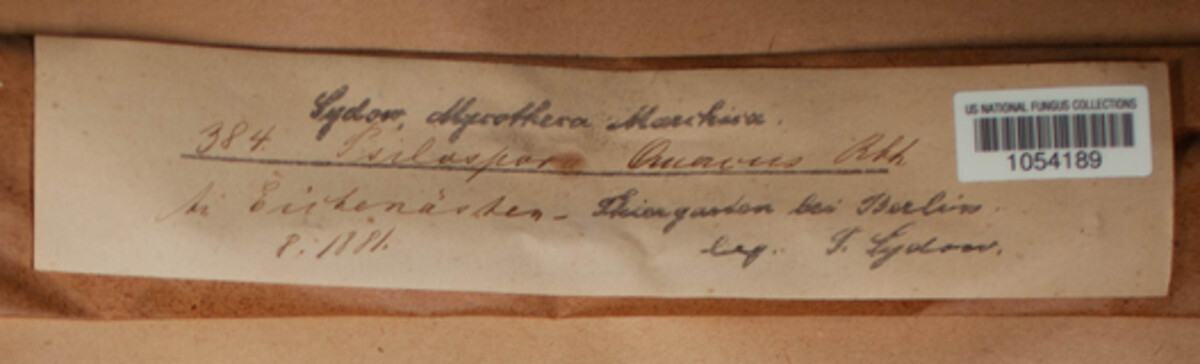 Sydow, Mycotheca Marchica.
384. Psilospora Quercus Rbh
Eichenästen - Thiergarten bei Berlin.
8. 1881.
leg. P. Sydow.
US NATIONAL FUNGUS COLLECTIONS
1054189